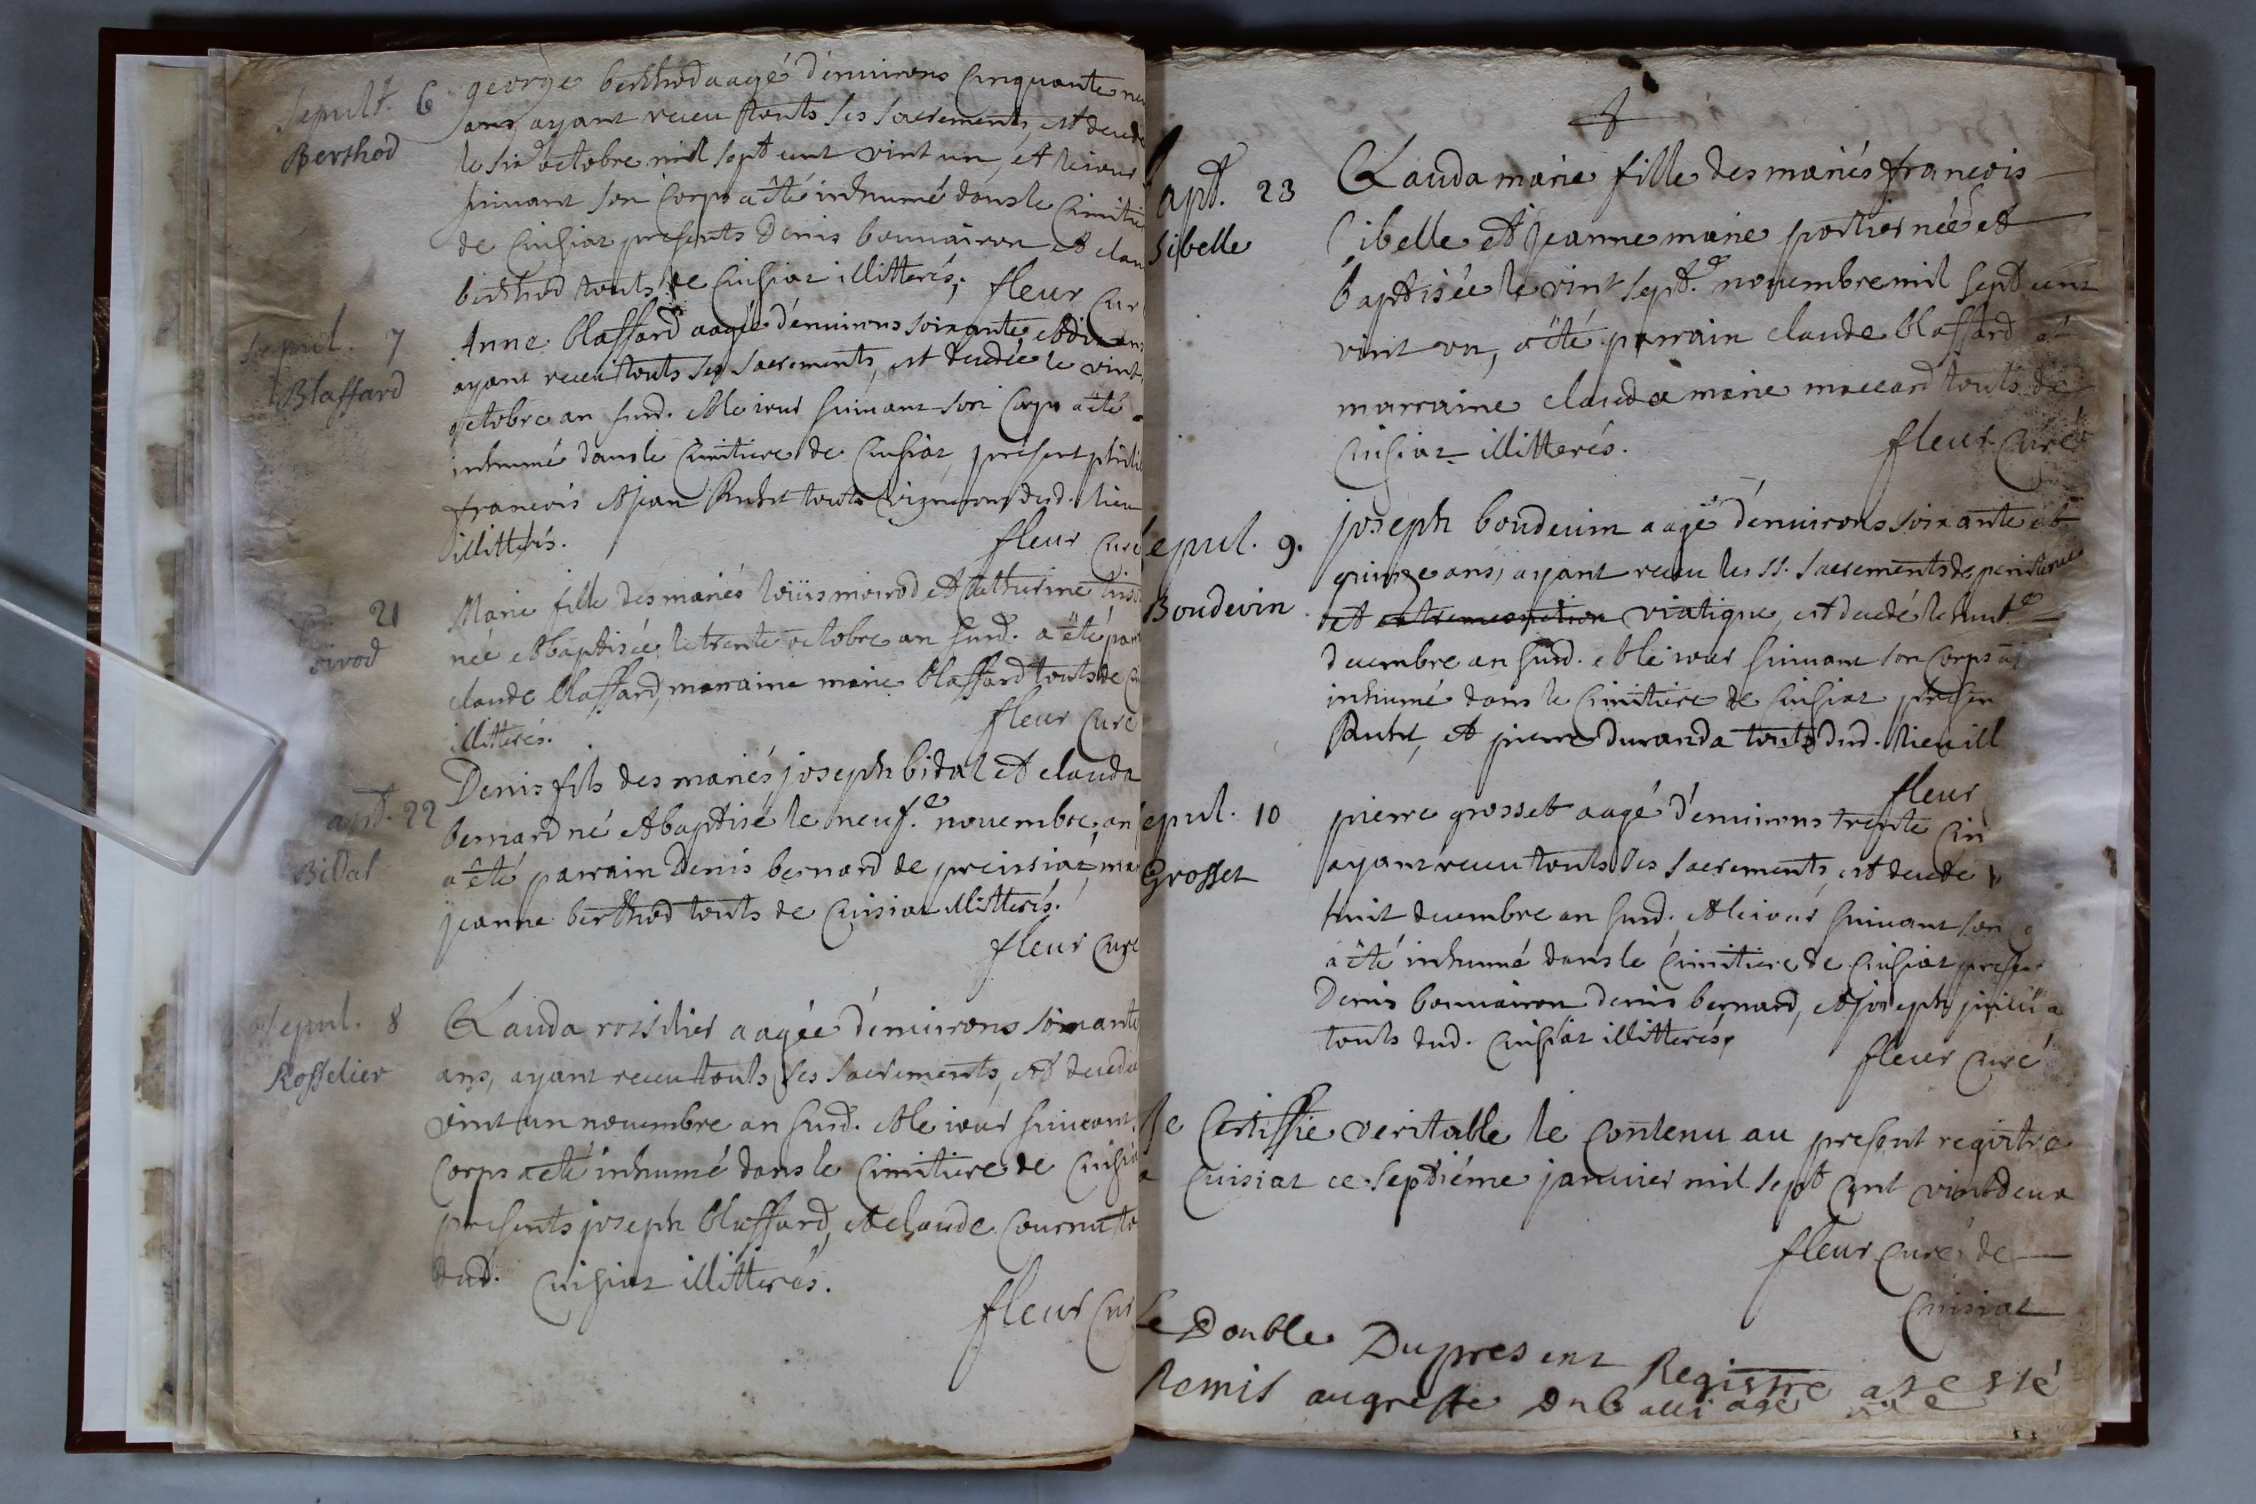 Sepult. 6
Berthod
george berthod aagé d'enuirons cinquante
ans, ayant receu touts ses sacrements, est
le six octobre mil sept cent vint un, et le iour
suiuant son corps a été inhumé dans le
de cuisiat presents denis bouuairon et
berthod touts de cuisiat illitterés; fleur
Sepul. 7
Blaffard
Anne blaffard aagée d'enuirons soixante et dix ans
ayant receu touts ses sacrements, est decedée le vint
octobre an susd. et le iour suiuant son corps a été
inhumé dans le cimitiere de cuisiat, présent
françois et jean touts vignerons dud. lieu
illitterés. fleur curé
21
Marie fille des mariés loüis moirod et Catherine
née et baptisée le trente octobre an susd. a été
claude blaffard, marraine marie blaffard touts de
illitterés. fleur curé
apt. 22
Bidal
Denis fils des mariés joseph bidal et clauda
bernard né et baptisé le neuf.e nouembre, an
a été parrain denis bernard de preissiat,
jeanne berthod touts de cuisiat illitterés.
fleur curé
Sepul. 8
Rosselier
Clauda rosselier aagée d'enuirons soixante
ans, ayant receu touts ses sacrements, est
vint un nouembre an susd. et le iour suiuant,
corps a eté inhumé dans le cimitiere de
presents joseph blaffard, et claude cournut
dud. cuisiat illitterés.
fleur
apt. 23
Sibelle
Clauda marie fille des mariés françois
Cibelle et jeanne marie portier née et
baptisée le vint sept.e nouembre mil sept cent
vint un, a été parrain claude blaffard et
marraine clauda marie maccard touts de
cuisiat illitterés. fleur curé
epul. 9.
Boudevin
joseph boudeuin aagé d'enuirons soixante et
quinze ans, ayant receu les ss. sacrements de penitence
et extremeonction viatique, est decedé le huit.e
decembre an susd. et le iour suiuant son corps
inhumé dans le cimitiere de cuisiat
et pierre duranda touts dud. lieu
fleur
epul. 10
Grosset
pierre grosset aagé d'enuirons trente
ayant receu touts ses sacrements, est decedé
huit decembre an susd. et le iour suiuant son
a été inhumé dans le cimitiere de cuisiat
Denis bouuairon denis bernard, et joseph
touts dud. cuisiat illitterés,
fleur curé
Je Certiffie veritable le contenu au present registre
a Cuisiat ce septiéme januier mil sept cent vint deux
fleur curé de
Cuisiat
Le Double Du present Registre a esté
Remis au greffe Du balliage